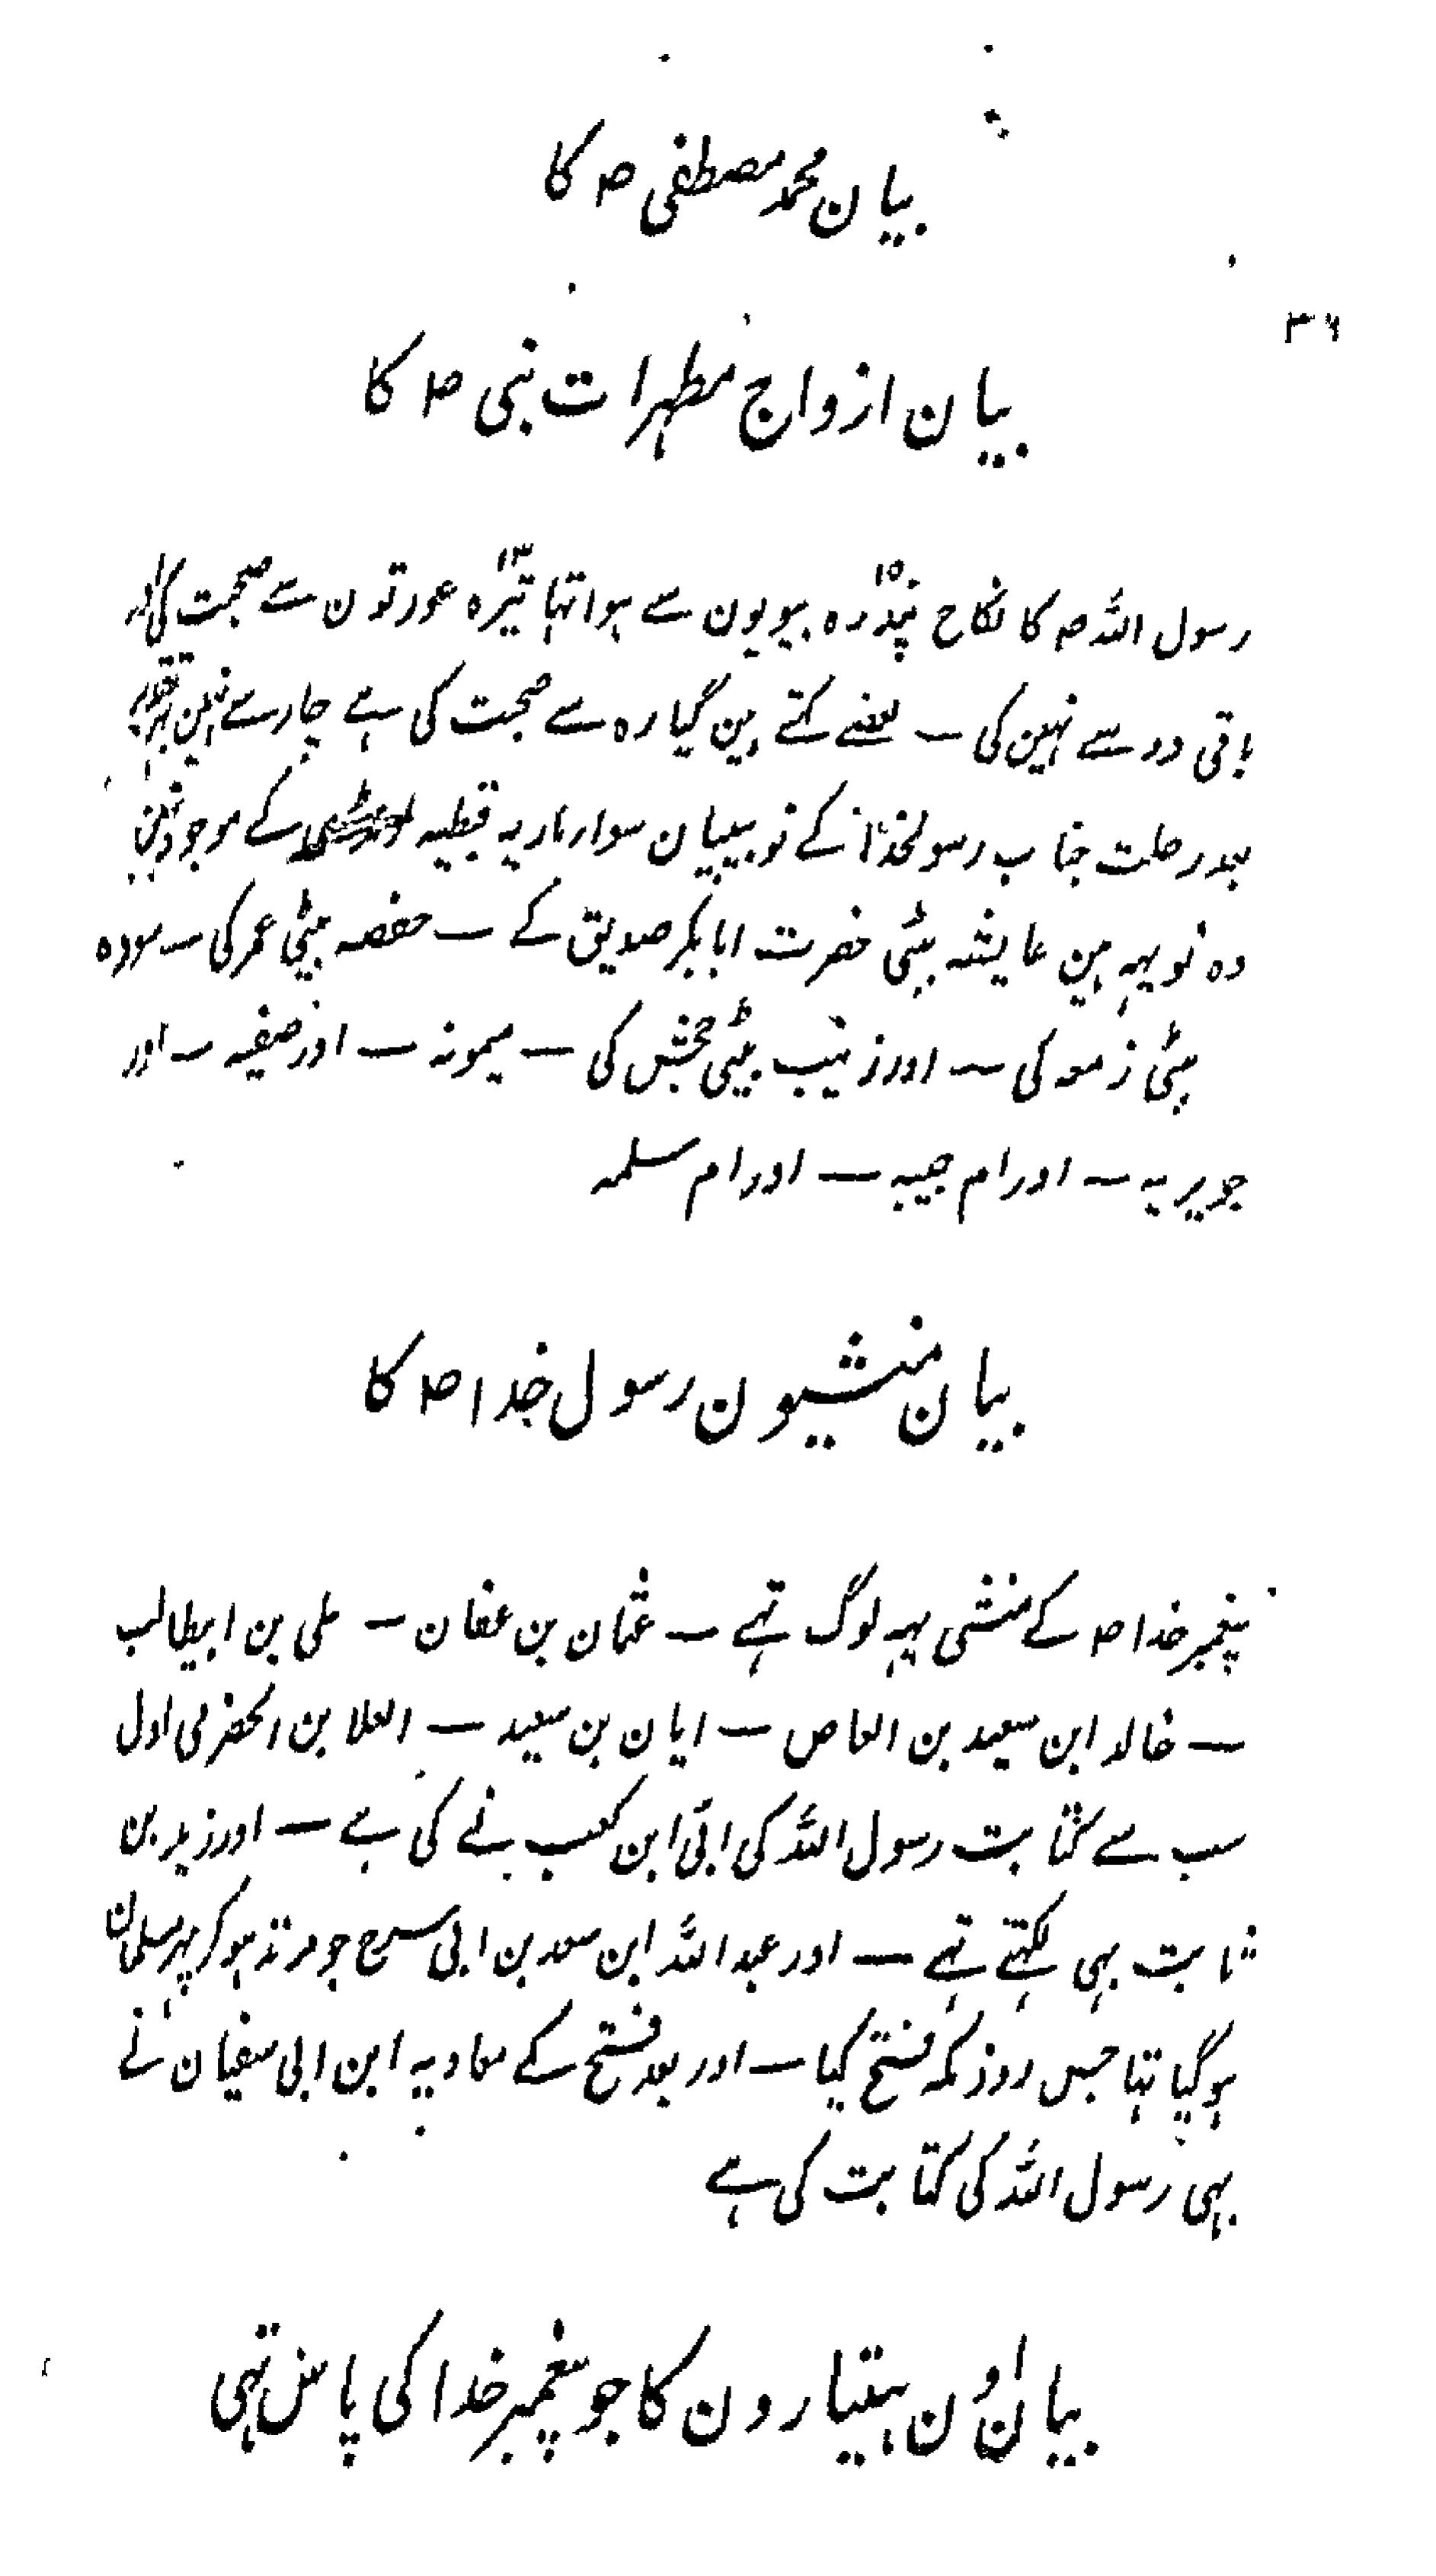 بیان محمد مصطفی ص کا
۳۶
بیان ازواج مطہرات نبی ص کا
رسول اللہ ص کا نکاح پندرہ ۱۵ بیویون سے ہوا تہا تیرہ ۱۳ عورتون سے صحبت کی اور
باقی دو سے نہین کی — بعضے کہتے ہین گیارہ سے صحبت کی ہے چار سے نہین
بعد رحلت جناب رسولخدا کے نو بیبیان سوار ماریہ قبطیہ کے موجود تہین
وہ نو یہہ ہین عایشہ بیٹی حضرت ابا بکر صدیق کے — حفصہ بیٹی عمر کی — سودہ
بیٹی زمعہ کی — اور زینب بیٹی جحش کی — میمونہ — اور صفیہ — اور
جویریہ — اور ام حبیبہ — اور ام سلمہ
بیان منشیون رسول خدا ص کا
پیغمبر خدا ص کے منشی یہہ لوگ تہے — عثمان بن عفان — علی بن ابیطالب
— خالد ابن سعید بن العاص — ابان بن سعید — العلا بن الحضرمی اول
سب سے کتابت رسول اللہ کی ابی ابن کعب نے کی ہے — اور زید بن
ثابت بہی لکہتے تہے — اور عبد اللہ ابن سعد بن ابی سرح جو مرتد ہو کر پہر مسلمان
ہو گیا تہا جس روز مکہ فتح کیا — اور بعد فتح کے معاویہ ابن ابی سفیان نے
بہی رسول اللہ کی کتابت کی ہے
بیان اون ہتیارون کا جو پیغمبر خدا کی پاس تہی